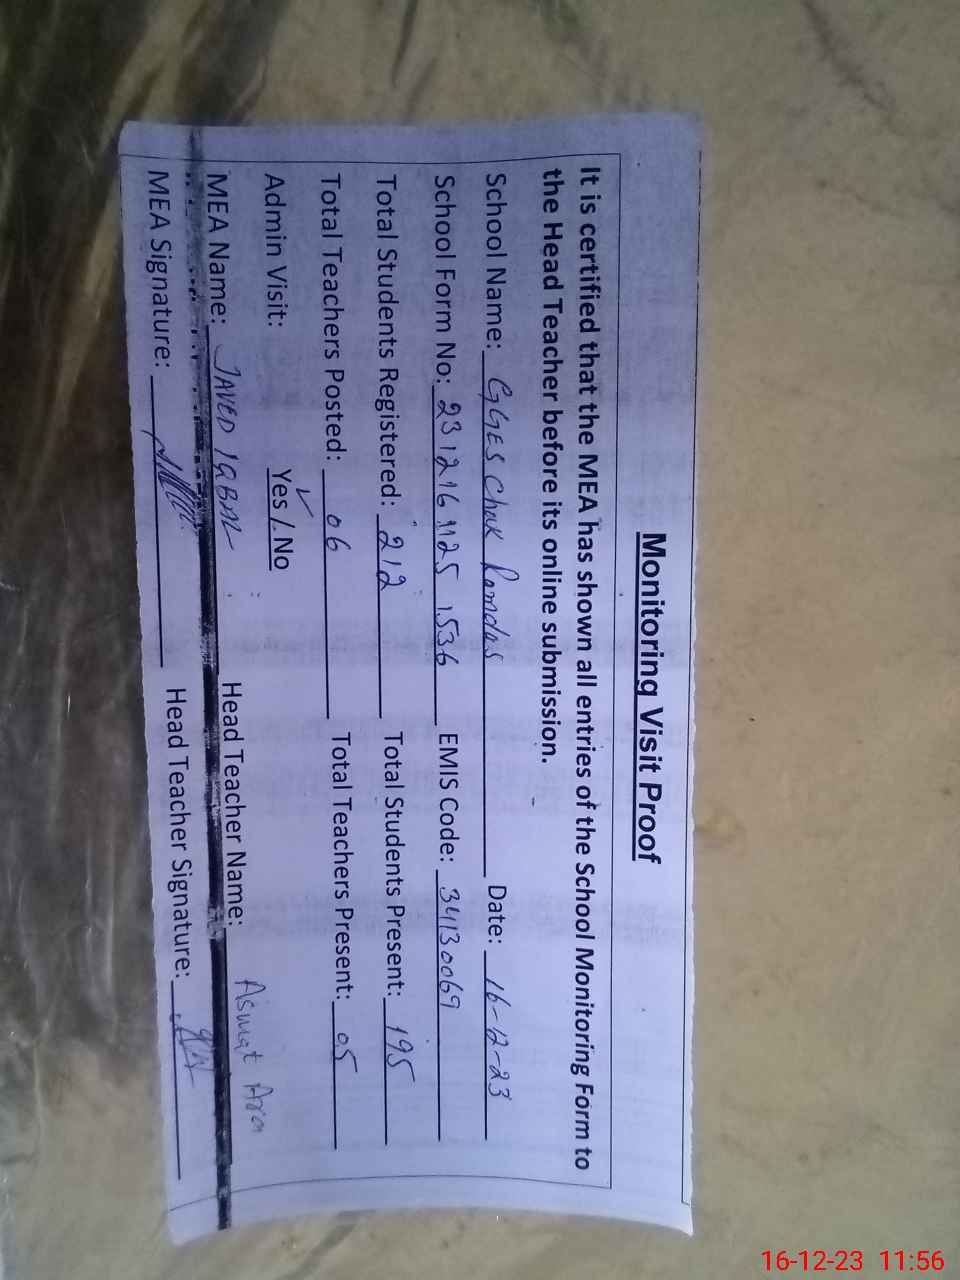 Monitoring Visit Proof
It is certified that the MEA has shown all entries of the School Monitoring Form to
the Head Teacher before its online submission.
School Name: GGES Chak Ramdas Date: 16-12-23
School Form No: 231216 1125 1536 EMIS Code: 34130069
Total Students Registered: 212 Total Students Present: 195
Total Teachers Posted: 06 Total Teachers Present: 05
Admin Visit: Yes / No
MEA Name: JAVED IQBAL Head Teacher Name: Asmat Ara
MEA Signature: Head Teacher Signature:
16-12-23 11:56